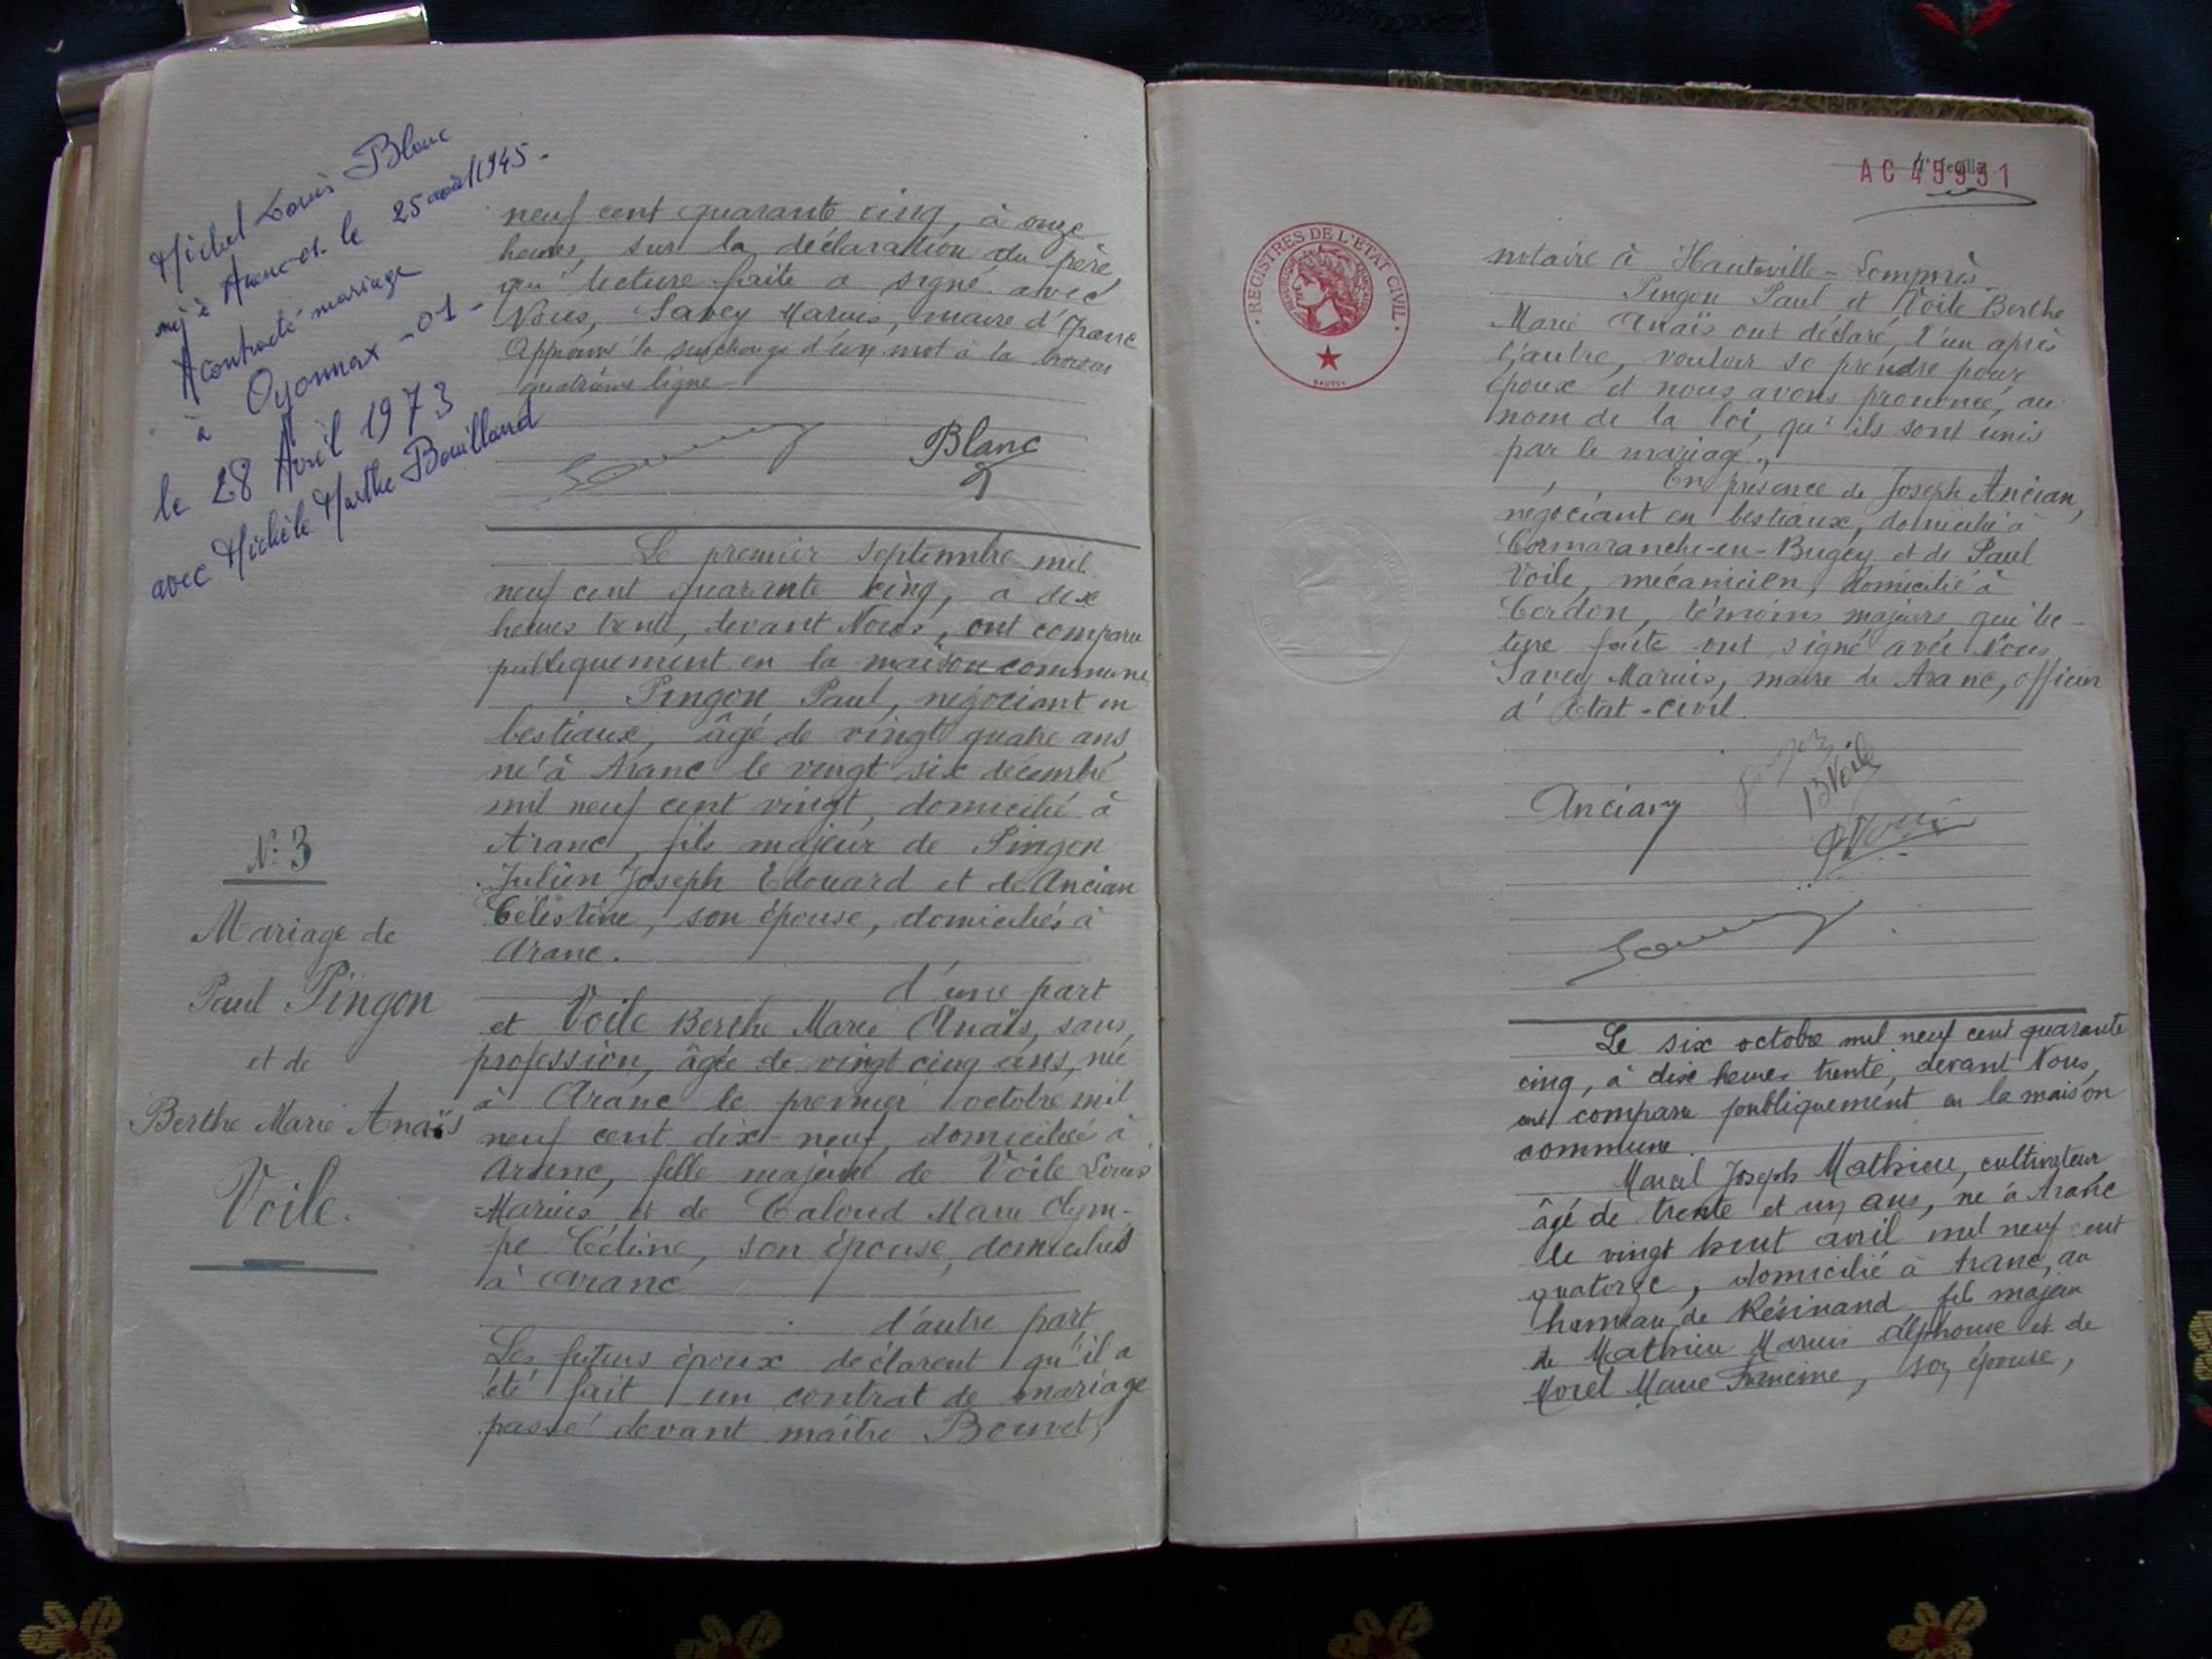 Michel Louis Blanc
né à Aranc-01- le 25 août 1945-
A contracté mariage
à Oyonnax -01-
le 28 Avril 1973
avec Michèle Marthe Bouilloud
neuf cent quarante cinq, à onze
heures, sur la déclaration du père
qui lecture faite a signé avec
Nous, Savey Marius, maire d'Aranc
Approuvé la surcharge d'un mot à la
quatrième ligne
Blanc
Le premier septembre mil
neuf cent quarante cinq, à dix
heures trente, devant Nous, ont comparu
publiquement en la maison commune
Pingon Paul, négociant en
bestiaux, âgé de vingt quatre ans,
né à Aranc le vingt six décembre
mil neuf cent vingt, domicilié à
Aranc, fils majeur de Pingon
Julien Joseph Edouard et de Ancian
Célestine, son épouse, domiciliés à
Aranc.
d'une part
et Voile Berthe Marie Anaïs, sans
profession, âgée de vingt cinq ans, née
à Aranc le premier octobre mil
neuf cent dix-neuf, domiciliée à
Aranc, fille majeure de Voile Louis
Marius et de Caloud Marie Olym-
pe Céline, son épouse, domiciliés
à Aranc
d'autre part
Les futurs époux déclarent qu'il a
été fait un contrat de mariage
passé devant maître Bouvet,
N: 3
Mariage de
Paul Pingon
et de
Berthe Marie Anaïs
Voile.
AC 45931
REGISTRES DE L'ETAT CIVIL
notaire à Hauteville-Lompnès.
Pingon Paul et Voile Berthe
Marie Anaïs ont déclaré, l'un après
l'autre, vouloir se prendre pour
époux et nous avons prononcé, au
nom de la loi, qu'ils sont unis
par le mariage.
En présence de Joseph Ancian,
négociant en bestiaux, domicilié à
Cormaranche-en-Bugey et de Paul
Voile, mécanicien, domicilié à
Cerdon, témoins majeurs qui lec-
ture faite ont signé avec Nous,
Savey Marius, maire de Aranc, officier
d'Etat-civil.
Ancian
B Voile
Le six octobre mil neuf cent quarante
cinq, à dix heures trente, devant Nous,
ont comparu publiquement en la maison
commune.
Marcel Joseph Mathieu, cultivateur
âgé de trente et un ans, né à Aranc
le vingt huit avril mil neuf cent
quatorze, domicilié à Aranc, au
hameau de Résinand fils majeur
de Mathieu Marius Alphonse et de
Morel Marie Francine, son épouse,